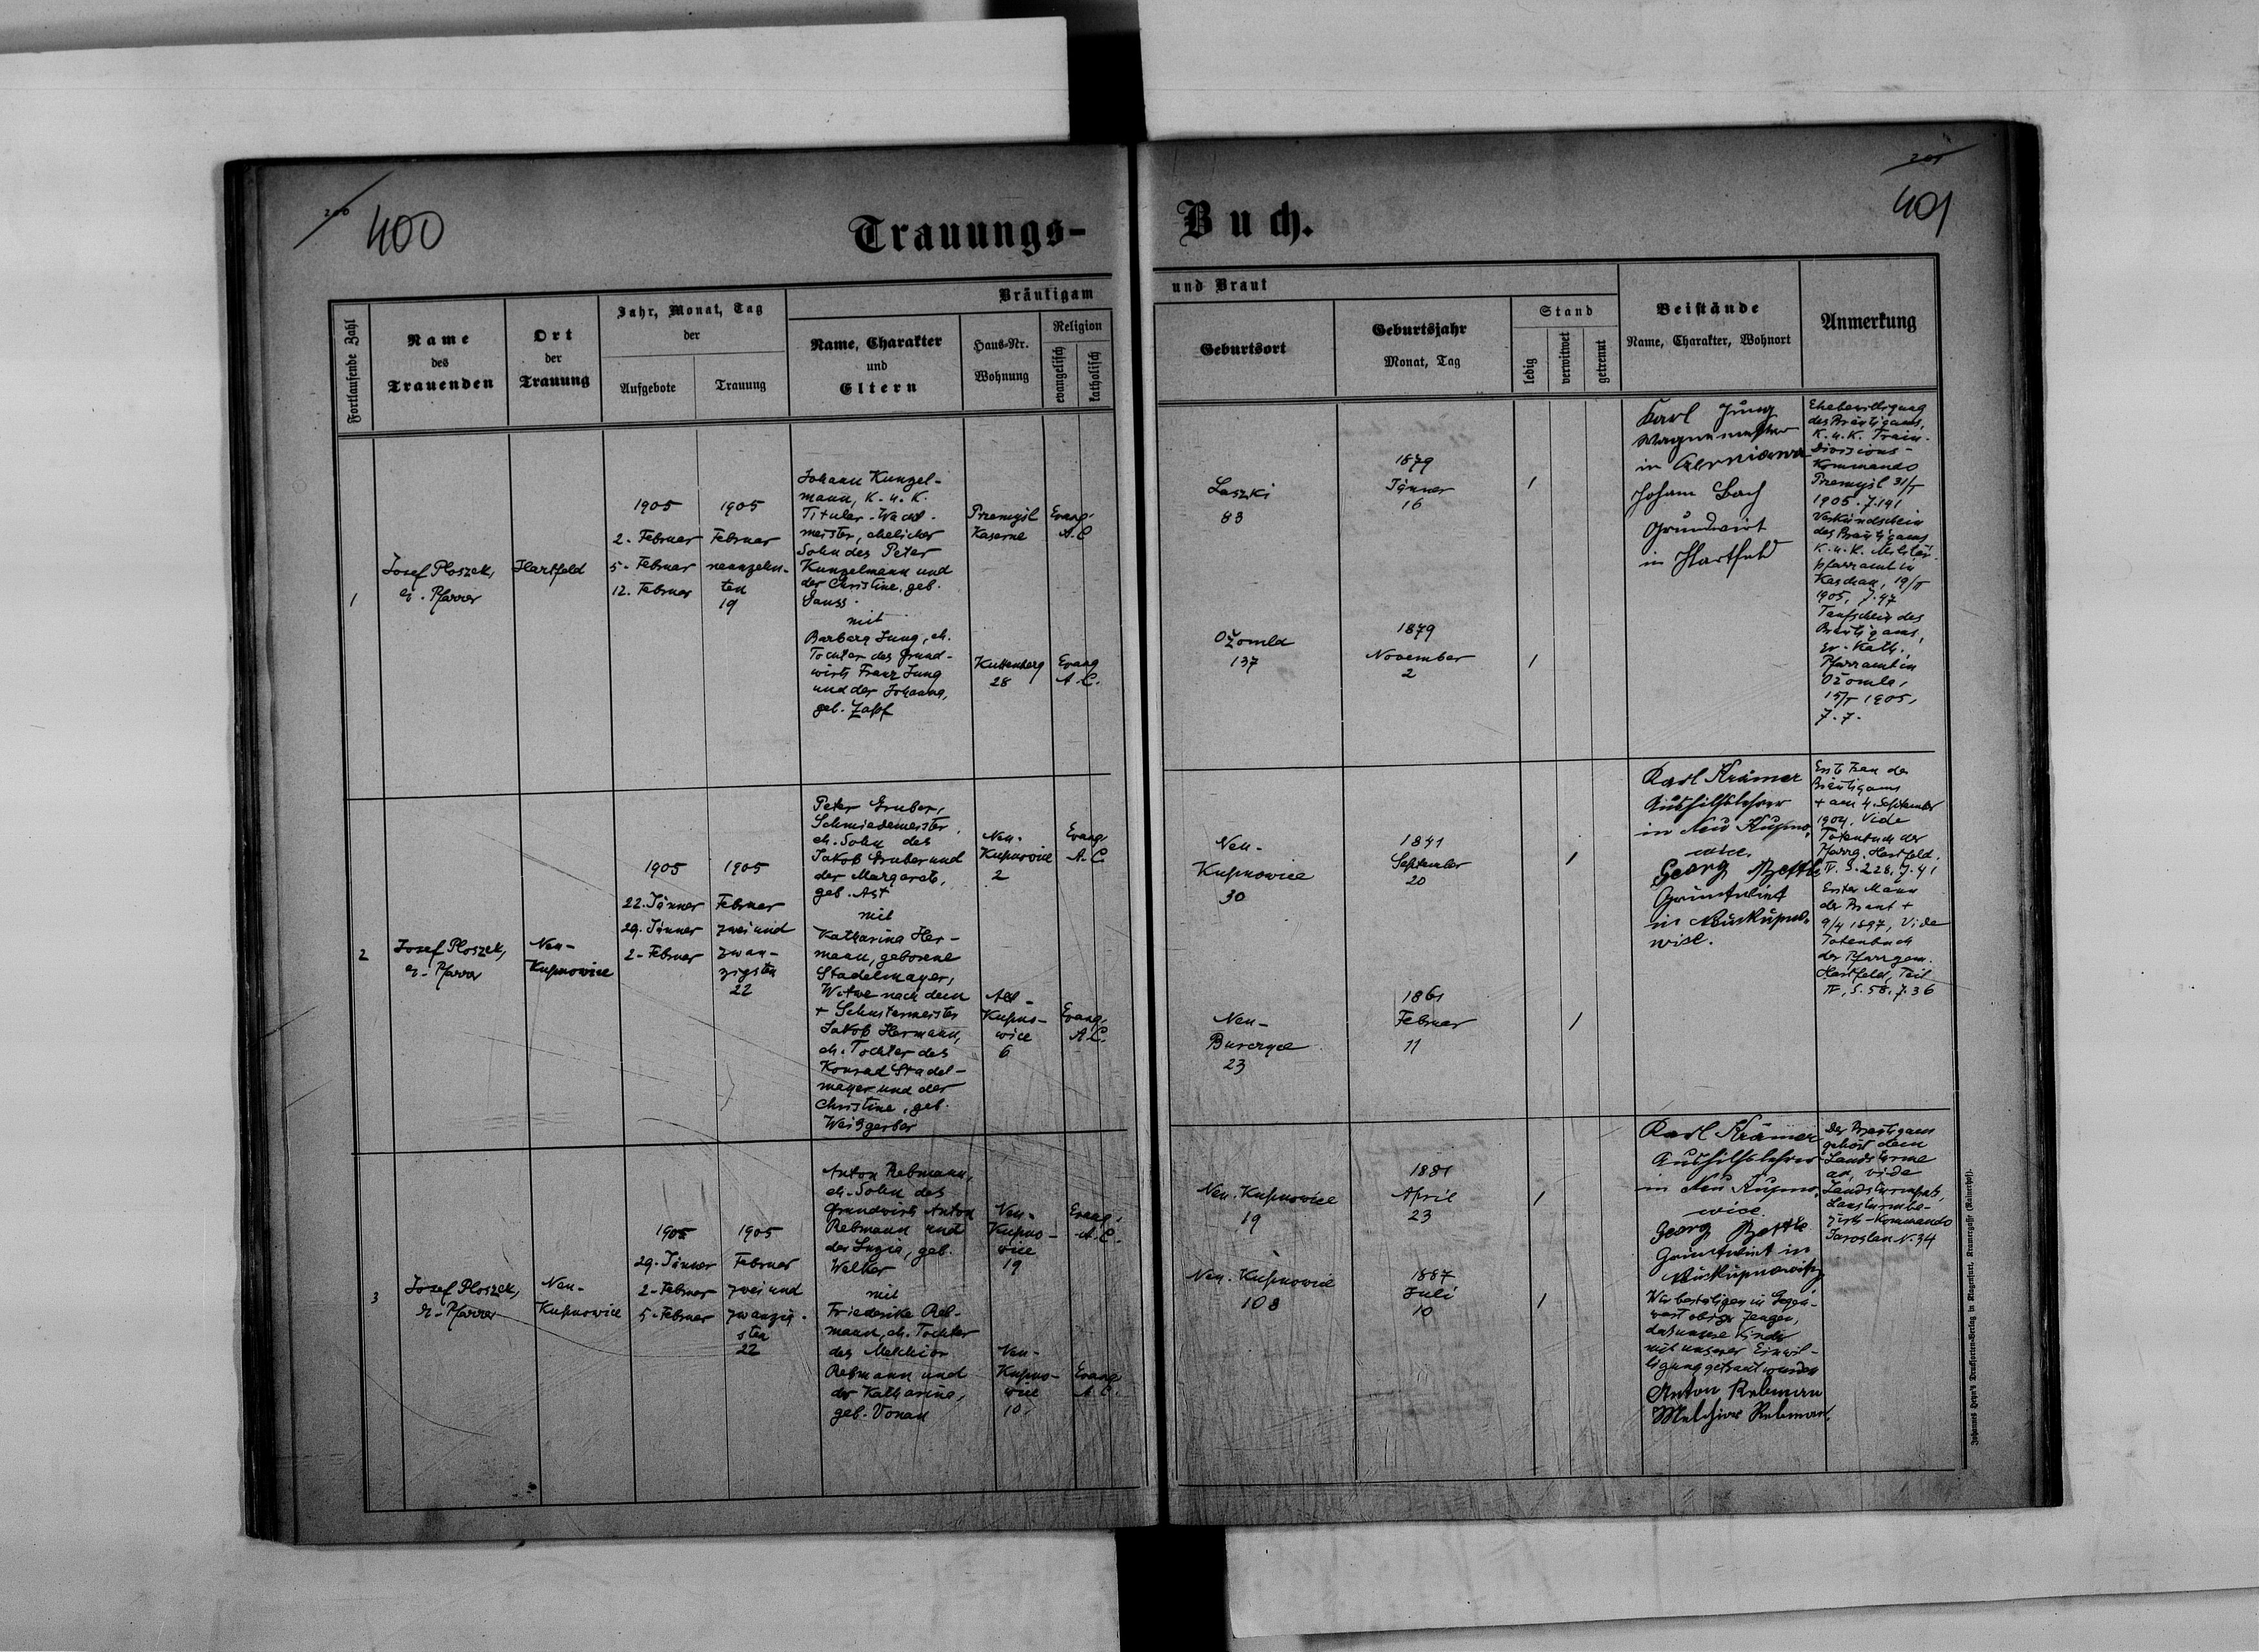 200
400
Trauungs-
Buch.
201
401
Fortlaufende Zahl
Name
des
Trauenden
Ort
der
Trauung
Jahr, Monat, Tag
der
Aufgebote
Trauung
Bräutigam
Name, Charakter
und
Eltern
Haus-Nr.
Wohnung
Religion
evangelisch
katholisch
und Braut
Geburtsort
Geburtsjahr
Monat, Tag
Stand
ledig
verwitwet
getrennt
Beistände
Name, Charakter, Wohnort
Anmerkung
1
Josef Ploszek,
ev. Pfarrer
Hartfeld
1905
2. Februar
5. Februar
12. Februar
1905
Februar
neunzehn-
ten
19
Johann Kunzel-
mann, K. u. K.
Titular-Wacht-
meister, ehelicher
Sohn des Peter
Kunzelmann und
der Christine, geb.
Sauss.
mit
Barbara Jung, eh.
Tochter des Grund-
wirts Franz Jung
und der Johanna,
geb. Zapf
Przemysl
Kaserne
Evang.
A.C
Kuttenberg
28
Evang
A.C.
Laszki
83
1879
Jänner
16
/
Ożomla
137
1879
November
2
/
Karl Jung
Wagnermeister
in
Johann Bach
Grundwirt
in Hartfeld
Ehebewilligung
des Bräutigams,
K. u. K. Train-
Divisions-
Kommando
Przemysl 31/I
1905. Z. 141
Verkündschein
des Bräutigams
K. u. K. Militär-
pfarramt in
Kaschau, 19/II
1905, Z. 47
Taufschein des
Bräutigams,
gr.-Kath.
Pfarramt in
Ożomla,
15/I 1905,
Z. 7.
2
Josef Ploszek,
ev. Pfarrer
Neu-
Kupnowice
1905
22. Jänner
29. Jänner
2. Februar
1905
Februar
zweiund
zwan-
zigsten
22
Peter Gruber,
Schmiedemeister,
eh. Sohn des
Jakob Gruber und
der Margareta,
geb. Ast
mit
Katharina Her-
mann, geborene
Stadelmayer,
Witwe nach dem
+ Schustermeister
Jakob Hermann,
eh. Tochter des
Konrad Stadel-
mayer und der
Christine, geb.
Weisgerber
Neu-
Kupnowice
2
Evang
A.C.
Alt-
Kupno-
wice
6
Evang.
A.C.
Neu-
Kupnowice
30
1841
September
20
/
Neu-
Burczyce
23
1861
Februar
11
/
Karl Krämer
Aushilfslehrer
in Neu Kupno-
wice.
Georg
Grundwirt
in Neukupno-
wice.
Erste Frau des
Bräutigams
+ am 4. September
1904, Vide
Totenbuch der
Pfarrg. Hartfeld.
IV. S. 228, Z. 41
Erster Mann
der Braut +
9/4 1897, Vide
Totenbuch
der Pfarrgem.
Hartfeld, Teil
IV, S. 58, Z. 36
3
Josef Ploszek,
ev. Pfarrer
Neu-
Kupnowice
1905
29. Jänner
2. Februar
5. Februar
1905
Februar
zweiund
zwanzig-
sten
22
Anton Rebmann,
eh. Sohn des
Grundwirts Anton
Rebmann und
der Luzia, geb.
Welker
mit
Friederike Reb-
mann, eh. Tochter
des Melchior
Rebmann und
der Katharina,
geb. Vonau
Neu-
Kupno-
wice
19
Evang.
A.C.
Neu-
Kupno-
wice
10.
Evang
A.C.
Neu-Kupnowice
19
1881
April
23
/
Neu-Kupnowice
108
1887
Juli
10
/
Karl Krämer
Aushilfslehrer
in Neu Kupno-
wice
Georg
Grundwirt in
Wir bestätigen in Gegen-
wart obiger Zeugen,
dass unsere Kinder
mit unserer Einwil-
ligung getraut wurden
Anton Rebman
Melchior Rebman,
Der Bräutigam
gehört dem
Landsturme
an, vide
Landsturmpass,
Landsturmbe-
zirks-Kommando
Jaroslau N. 34
Johannes Heyn's Drucksorten-Verlag in Klagenfurt, Kramergasse (Rainerhof).